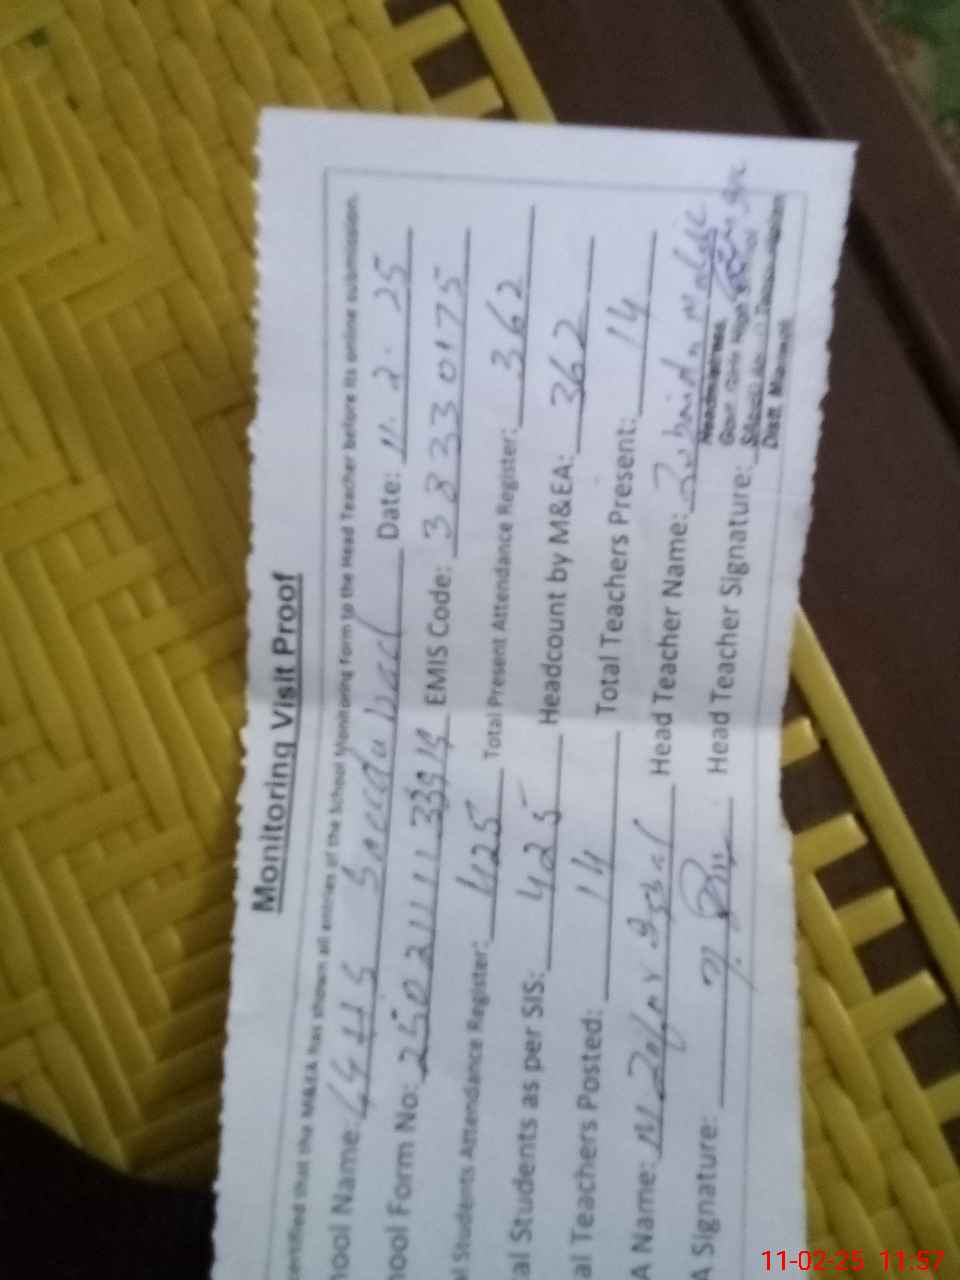 Monitoring Visit Proof
certified that the M&EA has shown all entries of the School Monitoring Form to the Head Teacher before its online submission.
hool Name: GGHS Saeedabad Date: 11.2.25
hool Form No: 250211113914 EMIS Code: 38330175
al Students Attendance Register: 425 Total Present Attendance Register: 362
al Students as per SIS: 425 Headcount by M&EA: 362
al Teachers Posted: 14 Total Teachers Present: 14
A Name: M Zafar Iqbal Head Teacher Name: Zubaida Malik
A Signature: Head Teacher Signature:
Headmistress
Govt. Girls High School
Distt. Mianwali
11-02-25 11:57